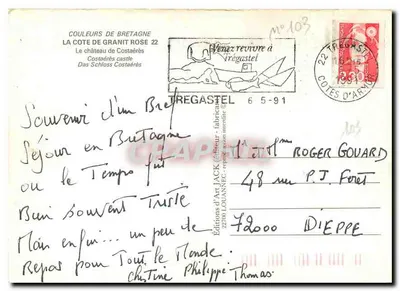 COULEURS DE BRETAGNE
LA COTE DE GRANIT ROSE 22
Le château de Costaérès
Costaérès castle
Das Schloss Costaérès
N° 103
Venez revivre à
Trégastel
TREGASTEL 6 5-91
22 TREGASTEL
1991
COTES D'ARMOR
103
Souvenir d'un Bref
Séjour en Bretagne
ou le Temps fut
Bien souvent Triste
Mais enfin... un peu de
Repos pour Tout le Monde.
Christine Philippe Thomas
Editions d'Art JACK
22700 LOUANNEC
Mr - Mme ROGER GOUARD
48 rue P.J. Forêt
72000 DIEPPE